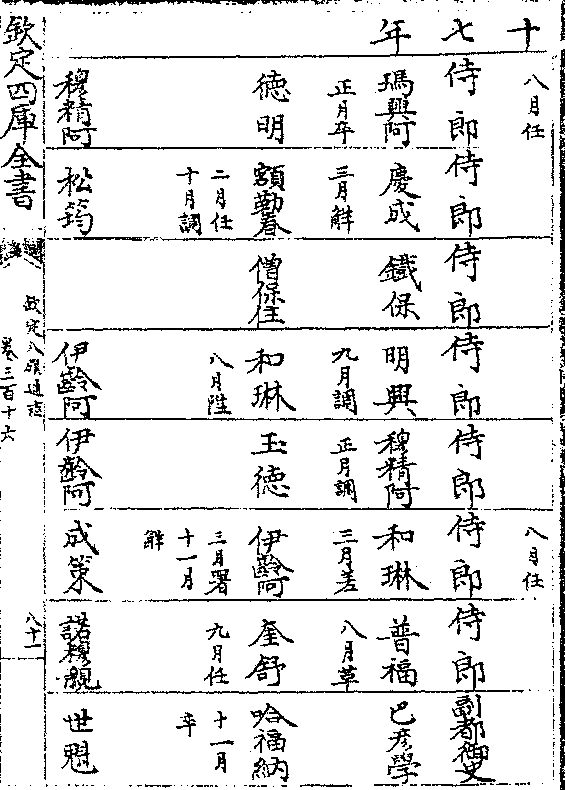 十七年
八月任
八月任
侍郎
瑪興阿
正月卒
德明
穆精阿
侍郎
慶成
三月解
額勒春
二月任
十月調
松筠
侍郎
鐵保
僧保住
侍郎
明興
九月調
和琳
八月陞
伊齡阿
侍郎
穆精阿
正月調
玉德
伊齡阿
侍郎
和琳
三月差
伊齡阿
三月署
十一月
解
成策
侍郎
普福
八月革
奎舒
九月任
諾穆親
副都御史
巴彦學
哈福納
十一月
卒
世魁
欽定四庫全書
欽定八旗通志
卷三百十六
八十一